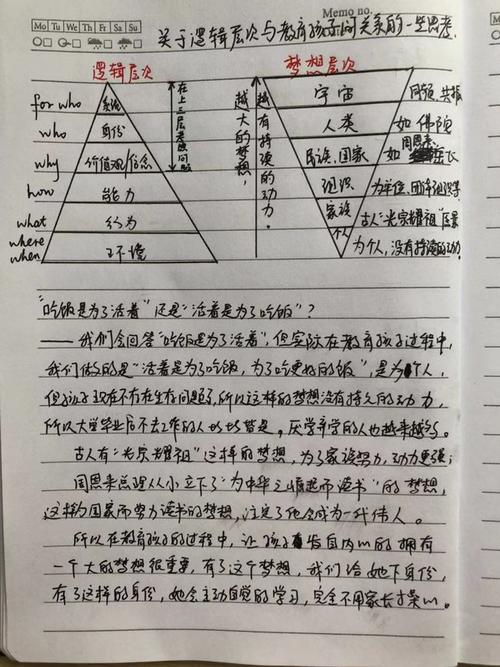 Memo no.
Mo Tu We Th Fr Sa Su
关于逻辑层次与教育孩子间关系的一些思考.
逻辑层次
梦想层次
for who
系统
who
身份
why
价值观/信念
how
能力
what
行为
where
when
环境
在上三层类问题
越大的梦想,
越有持续的动力.
宇宙
同频.共振
人类
如 佛陀
民族、国家
如 周恩来 岳飞
组织
为单位、团体组织等
家族
古人“光宗耀祖”
个人
为个人,没有持续的动力.
“吃饭是为了活着”还是“活着是为了吃饭”?
—— 我们会回答“吃饭是为了活着”,但实际在教育孩子过程中,
我们做的是“活着是为了吃饭,为了吃更好的饭”,是为个人,
但孩子现在不存在生存问题了,所以这样的梦想没有持久的动力,
所以大学毕业后不去工作的人比比皆是。厌学弃学的人也越来越多。
古人有“光宗耀祖”这样的梦想,为了家族努力,动力更强;
周恩来总理从小立下了“为中华之崛起而读书”的梦想,
这样为国家而努力读书的梦想,注定了他会成为一代伟人。
所以在教育孩子的过程中,让孩子发自内心的拥有
一个大的梦想很重要,有了这个梦想,我们给她下身份,
有了这样的身份,她会主动自觉的学习,完全不用家长操心。